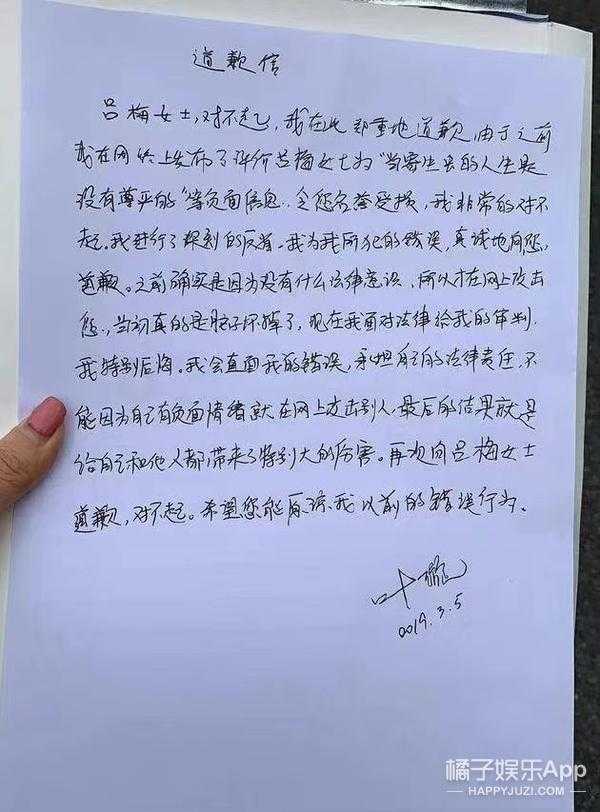 道歉信
吕梅女士,对不起,我在此郑重地道歉,由于之前
我在网络上发布了评价吕梅女士为“当寄生虫的人生是
没有尊严的”等负面信息,令您名誉受损,我非常的对不
起。我进行了深刻的反省,我为我所犯的错误,真诚地向您
道歉。之前确实是因为没有什么法律意识,所以才在网上攻击
您,当初真的是脑子坏掉了,现在我面对法律给我的审判,
我特别后悔。我会直面我的错误,承担自己的法律责任,不
能因为自己有负面情绪就在网上攻击别人,最后的结果就是
给自己和他人都带来了特别大的伤害。再次向吕梅女士
道歉,对不起。希望您能原谅我以前的错误行为。
叶璇
2019.3.5
橘子娱乐App
HAPPYJUZI.COM